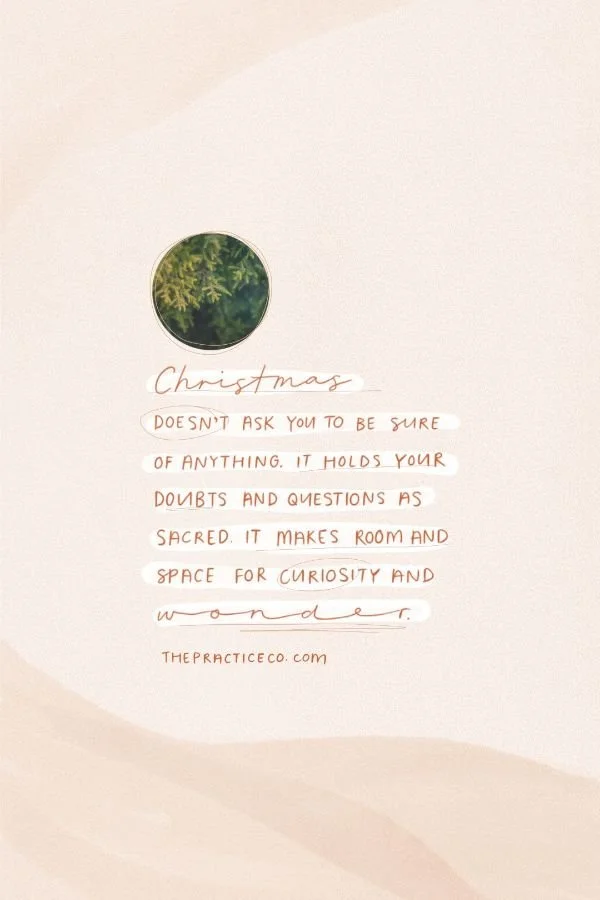 Christmas
DOESN'T ASK YOU TO BE SURE
OF ANYTHING. IT HOLDS YOUR
DOUBTS AND QUESTIONS AS
SACRED. IT MAKES ROOM AND
SPACE FOR CURIOSITY AND
wonder.
THEPRACTICECO.COM